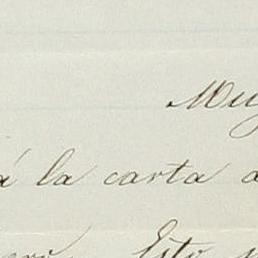 Muy
á la carta a
Esto